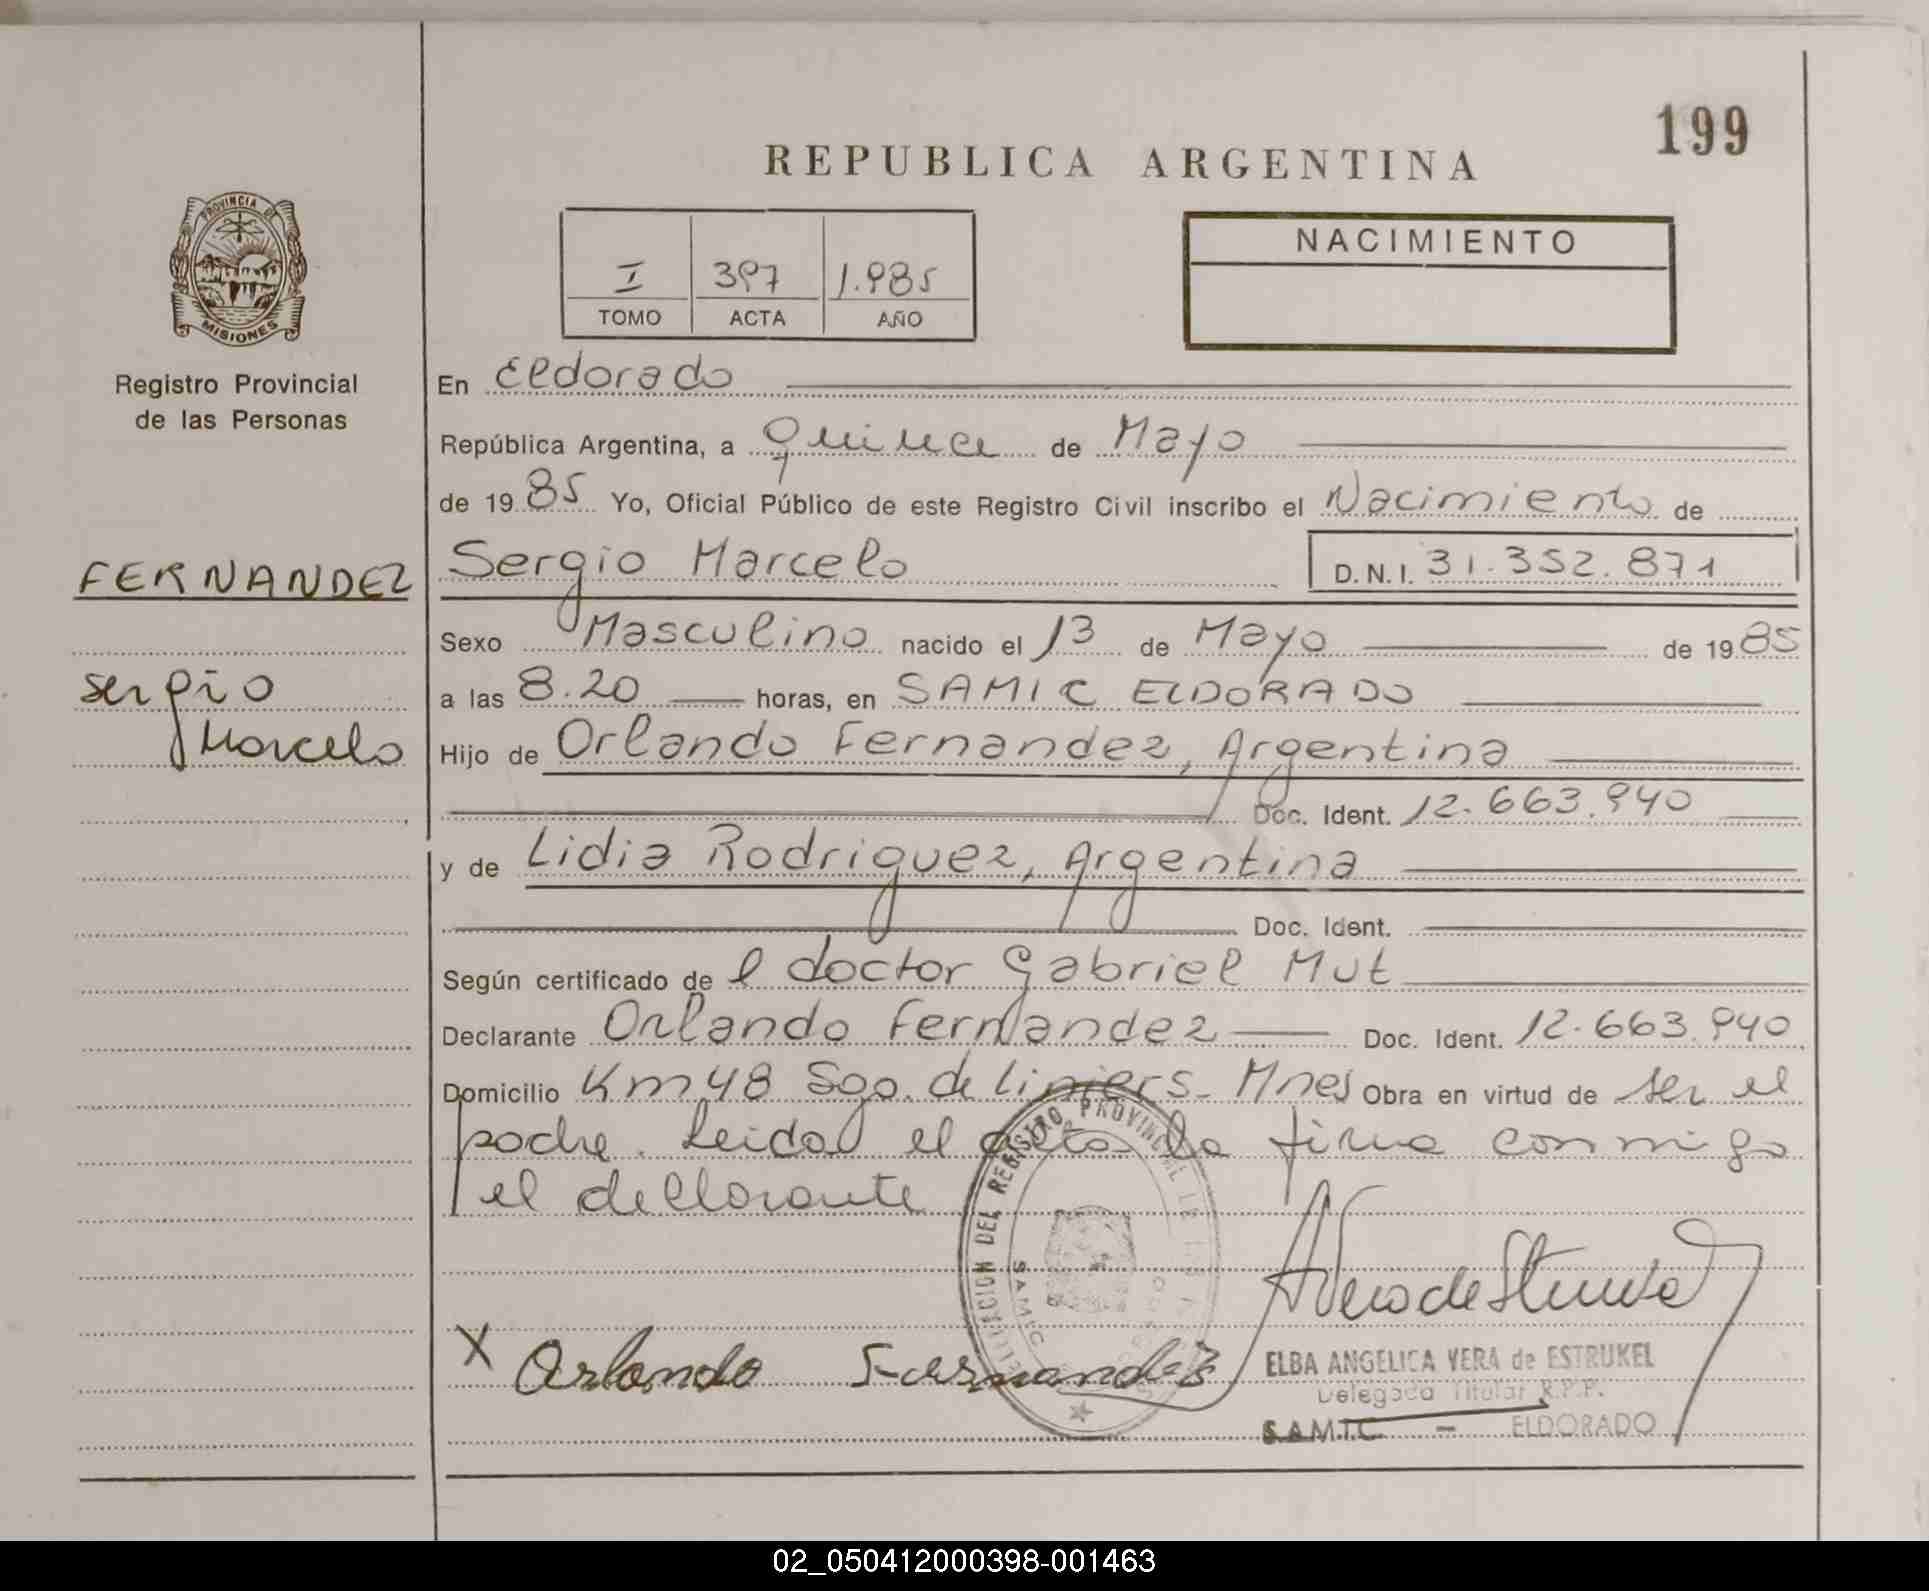 199
REPUBLICA ARGENTINA
PROVINCIA DE
MISIONES
Registro Provincial
de las Personas
I 397 1.985
TOMO ACTA AÑO
NACIMIENTO
En Eldorado
República Argentina, a quince de Mayo
de 1985 Yo, Oficial Público de este Registro Civil inscribo el Nacimiento de
FERNANDEZ
Sergio Marcelo D.N.I. 31.352.871
Sexo Masculino nacido el 13 de Mayo de 1985
Sergio
Marcelo
a las 8.20 horas, en SAMIC ELDORADO
Hijo de Orlando Fernandez, Argentina
Doc. Ident. 12.663.940
y de Lidia Rodriguez, Argentina
Doc. Ident.
Según certificado de l doctor Gabriel Mut
Declarante Orlando Fernandez Doc. Ident. 12.663.940
Domicilio Km 48 Sgo. de Liniers. Mnes Obra en virtud de ser el
padre. Leida el acta la firma conmigo
el declarante
DELEGACION DEL REGISTRO PROVINCIAL DE LAS
SAMIC
X Orlando Fernandez
ELBA ANGELICA VERA de ESTRUKEL
Delegada Titular R.P.P.
S.A.M.I.C. - ELDORADO
02_050412000398-001463